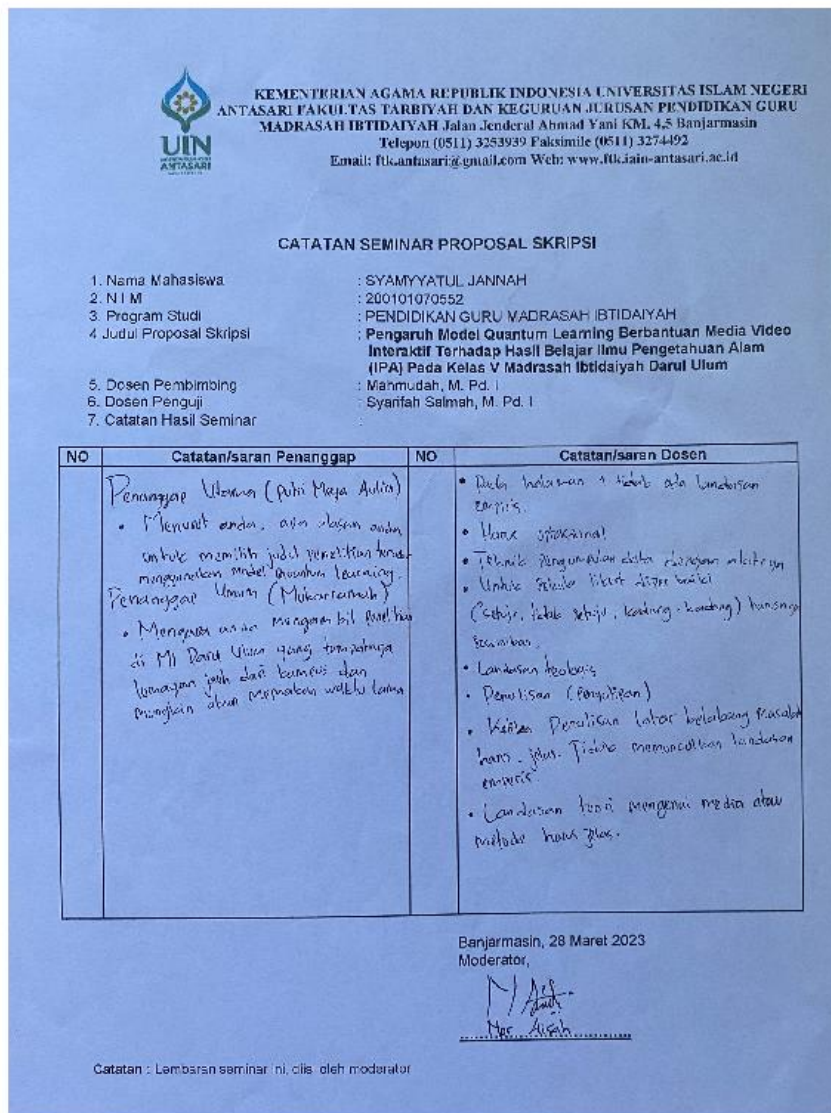 KEMENTERIAN AGAMA REPUBLIK INDONESIA UNIVERSITAS ISLAM NEGERI
ANTASARI FAKULTAS TARBIYAH DAN KEGURUAN JURUSAN PENDIDIKAN GURU
MADRASAH IBTIDAIYAH Jalan Jenderal Ahmad Yani KM. 4,5 Banjarmasin
Telepon (0511) 3253939 Faksimile (0511) 3274492
Email: ftk.antasari@gmail.com Web: www.ftk.iain-antasari.ac.id
UIN
ANTASARI
CATATAN SEMINAR PROPOSAL SKRIPSI
1. Nama Mahasiswa : SYAMYYATUL JANNAH
2. N I M : 200101070552
3. Program Studi : PENDIDIKAN GURU MADRASAH IBTIDAIYAH
4 Judul Proposal Skripsi : Pengaruh Model Quantum Learning Berbantuan Media Video
Interaktif Terhadap Hasil Belajar Ilmu Pengetahuan Alam
(IPA) Pada Kelas V Madrasah Ibtidaiyah Darul Ulum
5. Dosen Pembimbing : Mahmudah, M. Pd. I
6. Dosen Penguji : Syarifah Salmah, M. Pd. I
7. Catatan Hasil Seminar :
NO Catatan/saran Penanggap NO Catatan/saran Dosen
Penanggap Utama (Putri Maya Aulia)
• Menurut anda, apa alasan anda
untuk memilih judul penelitian
menggunakan model quantum learning.
Penanggap Umum (Mukarramah)
• Mengapa anda mengambil penelitian
di MI Darul Ulum yang tempatnya
lumayan jauh dari kampus dan
mungkin akan memakan waktu lama
• Pada halaman 1 tidak ada landasan
empiris.
• Harus operasional
• Teknik pengumpulan data
• Untuk skala likert diperbaiki
(setuju, tidak setuju, kadang-kadang) harusnya
• Landasan teologis
• Penulisan (Pengutipan)
• Penulisan latar belakang masalah
harus jelas. Tidak memunculkan landasan
empiris.
• Landasan teori mengenai media atau
metode harus jelas.
Banjarmasin, 28 Maret 2023
Moderator,
Nor Aisah
Catatan : Lembaran seminar ini, diisi oleh moderator